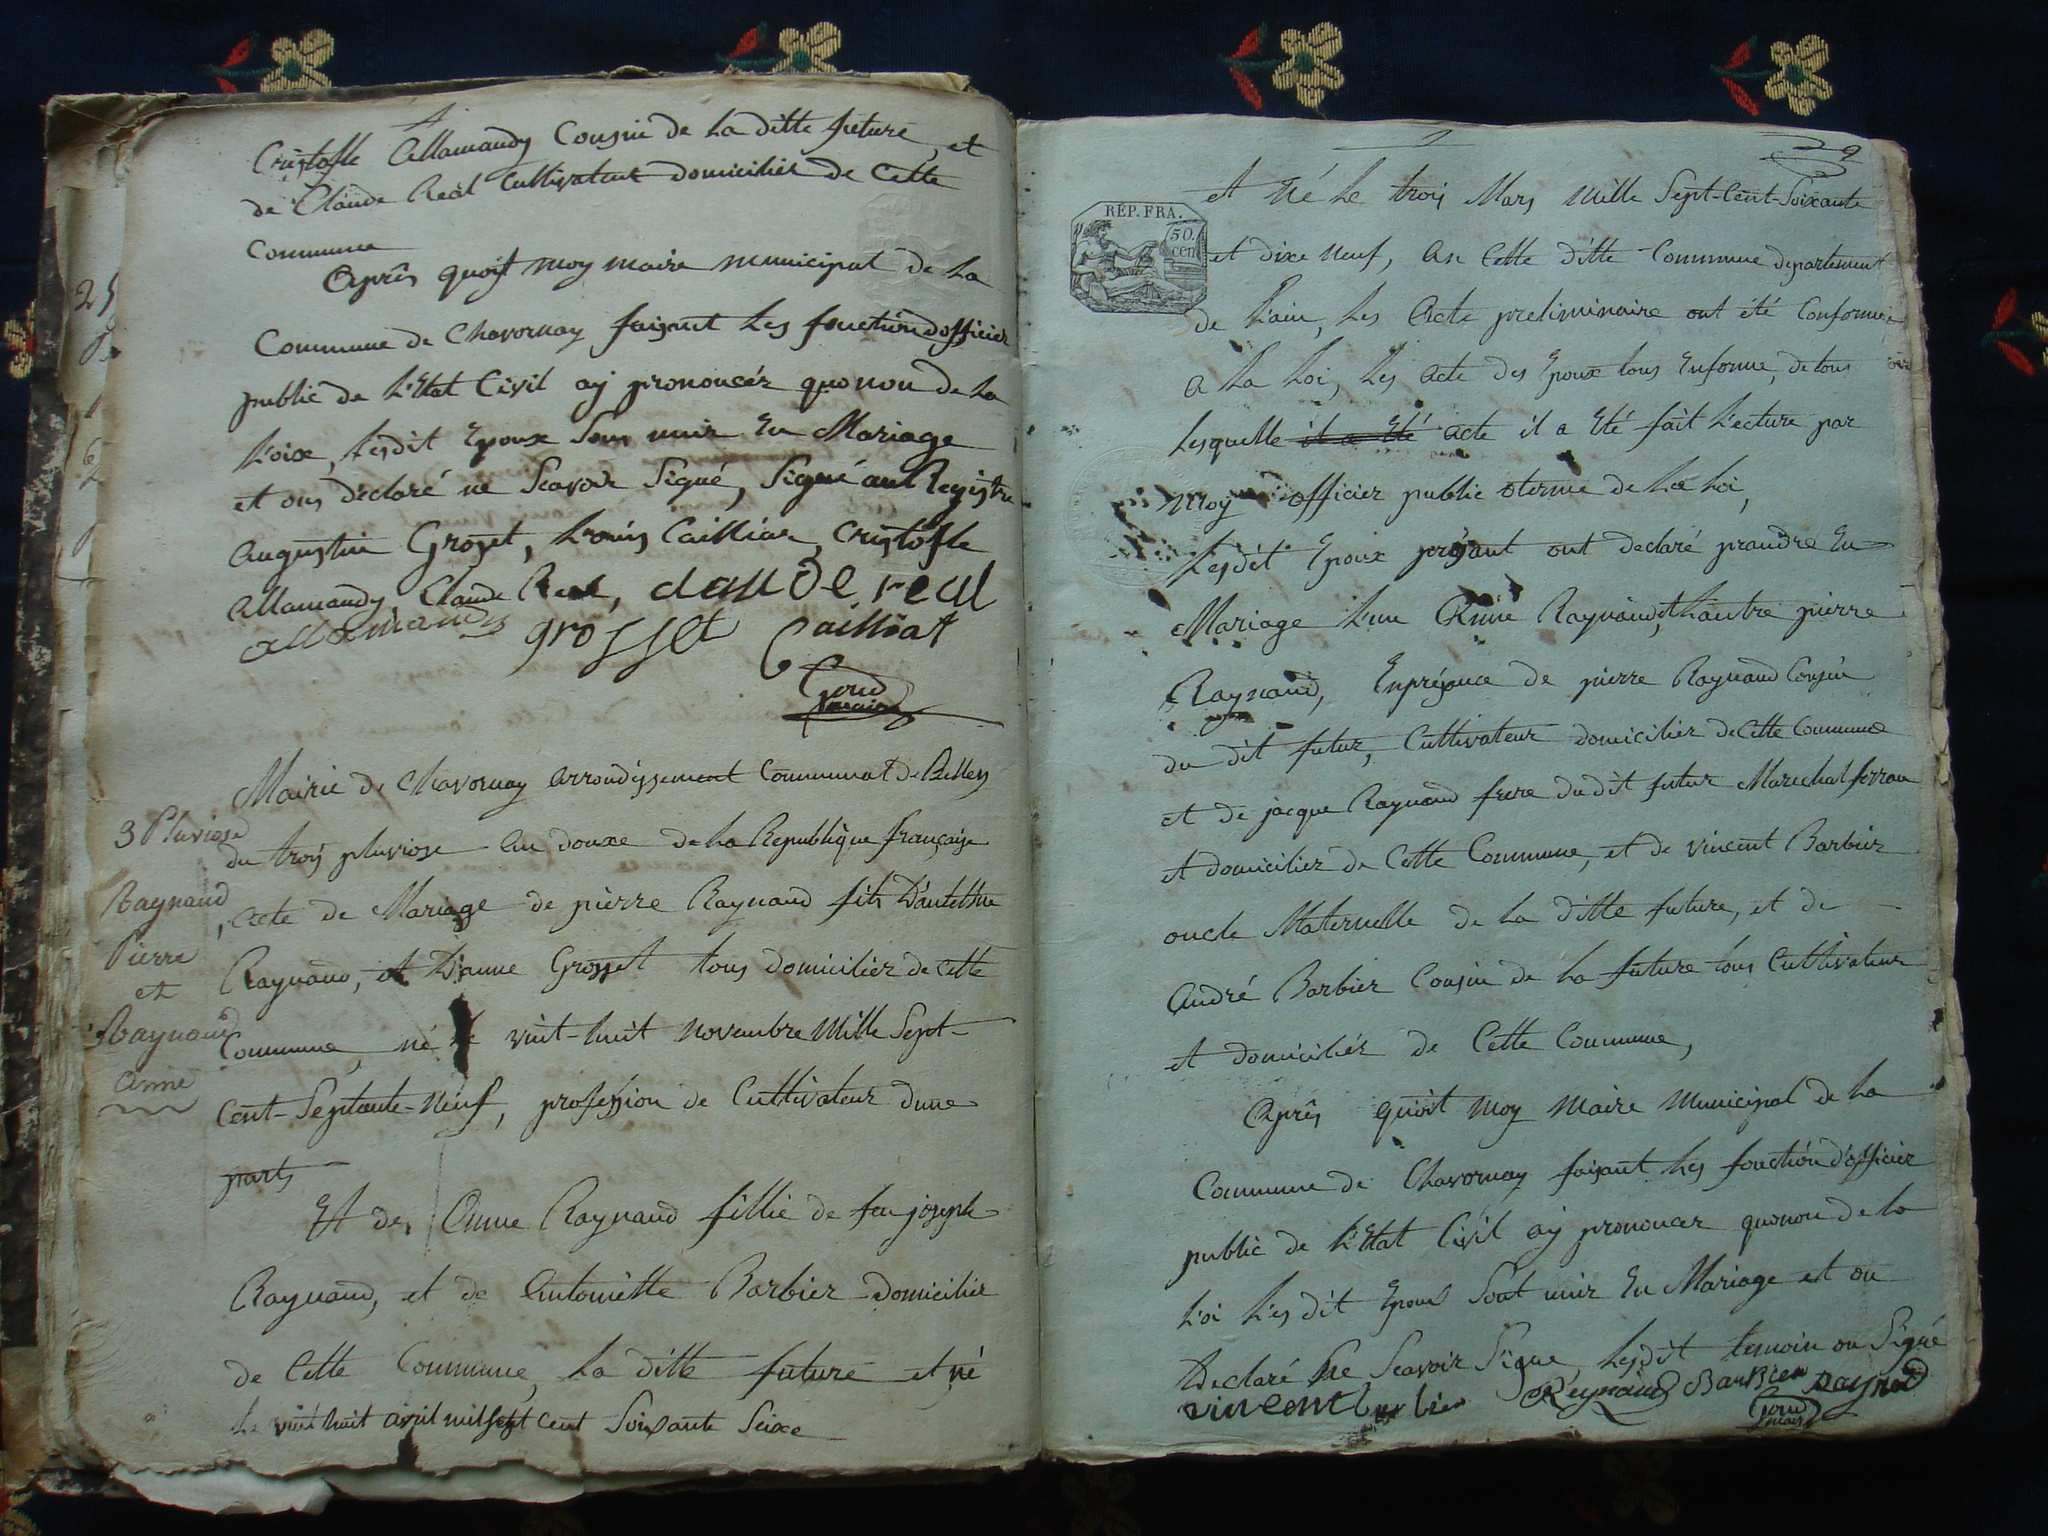 4
Cristofle Allamandy Cousin de La ditte future, et
de Claude Real Cultivateur domicilier de Cette
Commune
Après quoit moy maire municipal de La
Commune de Chavornay faisant Les fonction d'officier
public de L'Etat Civil ay prononcér quonon de La
Loix, Lesdit Epoux Son unir En Mariage
et ons déclaré ne Scavoir Signé, Signé au Registre
Augustin Grosset, Louis Cailliat, Cristofle
Allamandy, Claude Real, clauDe real
allamandy grosset Cailliat
Goud
maire
Mairie de Chavornay arrondissement Communal de Belley
3 Pluviose
du troy pluviose an douxe de La Republique française
Raynaud
Pierre
et
Raynaud
anne
Acte de Mariage de pierre Raynaud fils D'antelme
Raynaud, et D'anne Grosset tous domicilier de Cette
Commune, né vint-huit novembre Mille Sept-
Cent-Septante-Neuf, profession de Cultivateur dune
parts
Et de Anne Raynaud fillie de feu joseph
Raynaud, et de Antoinette Barbier domicilier
de Cette Commune, La ditte future et né
Le vint huit avril mil sept cent Soixante Seixe
29
REP. FRA.
50.
cen
et Né Le troy Mars Mille Sept-Cent-Soixante
et dixe neuf, An Cette ditte Commune departement
de L'ain, Les Acte preliminaire ont été Conforme
a La Loi, Les Acte des Epoux tous Enforme, de tous
Lesquelle il a Eté Acte il a Eté fait Lecture par
Moy officier public aterme de La Loi,
Lesdit Epoux présant ont declaré prandre En
Mariage L'un Anne Raynaud, et Lautre pierre
Raynaud, Enprésance de pierre Raynaud Cousin
du dit futur, Cultivateur domicilier de Cette Commune
et de jacque Raynaud frere du dit futur Marechal ferran
et domicilier de Cette Commune, et de vincent Barbier
oncle Maternelle de La ditte future, et de
André Barbier Cousin de La future tous Cultivateur
et domiciliér de Cette Commune,
Après quoit Moy Maire Municipal de La
Commune de Chavornay faisant Les fonction d'officier
public de L'Etat Civil ay prononcer quonon de La
Loi Lesdit Epoux Sont unir En Mariage et on
Declaré Ne Scavoir Signe, Lesdit temoin on Signé
vincent barbier Reynaud Barbier Raynod
Goud
maire